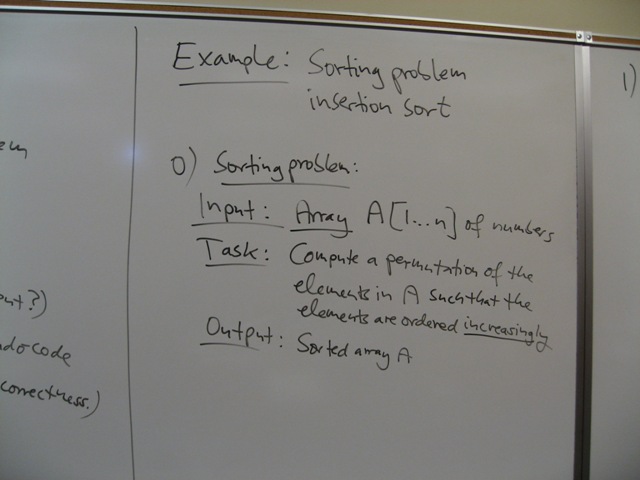 Example: Sorting problem
insertion sort
0) Sorting problem:
Input: Array A[1...n] of numbers
Task: Compute a permutation of the
elements in A such that the
elements are ordered increasingly
Output: Sorted array A
code
correctness.)
1)